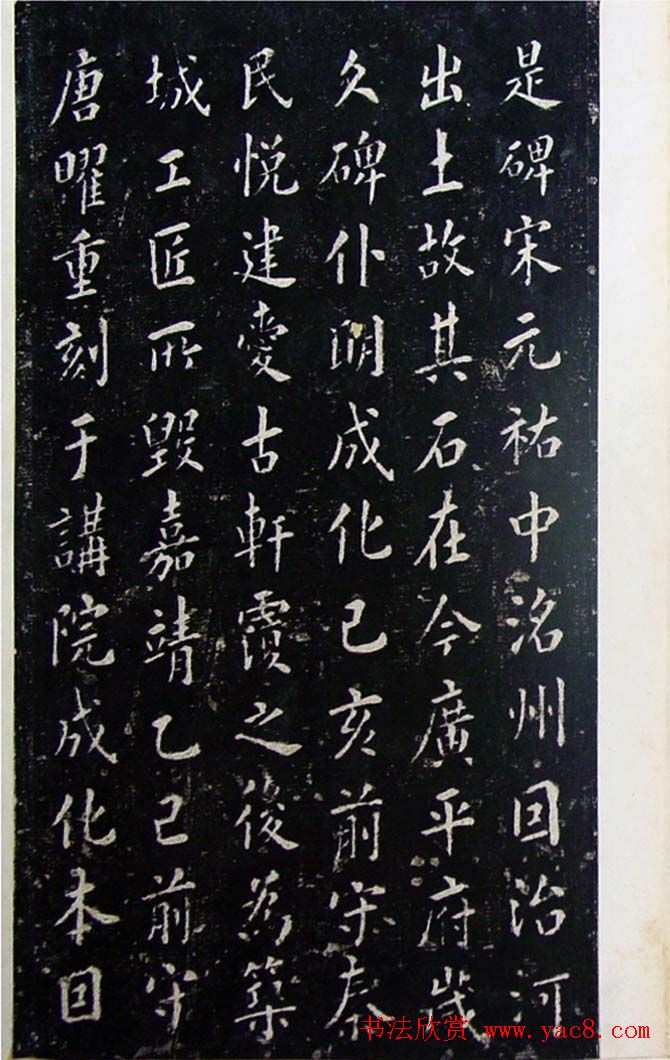 是碑宋元祐中洺州囙治河
出土故其石在今廣平府歲
久碑仆明成化己亥前守秦
民悅建愛古軒覆之後為築
城工匠所毀嘉靖乙巳前守
唐曜重刻于講院成化本囙
书法欣赏 www.yac8.com